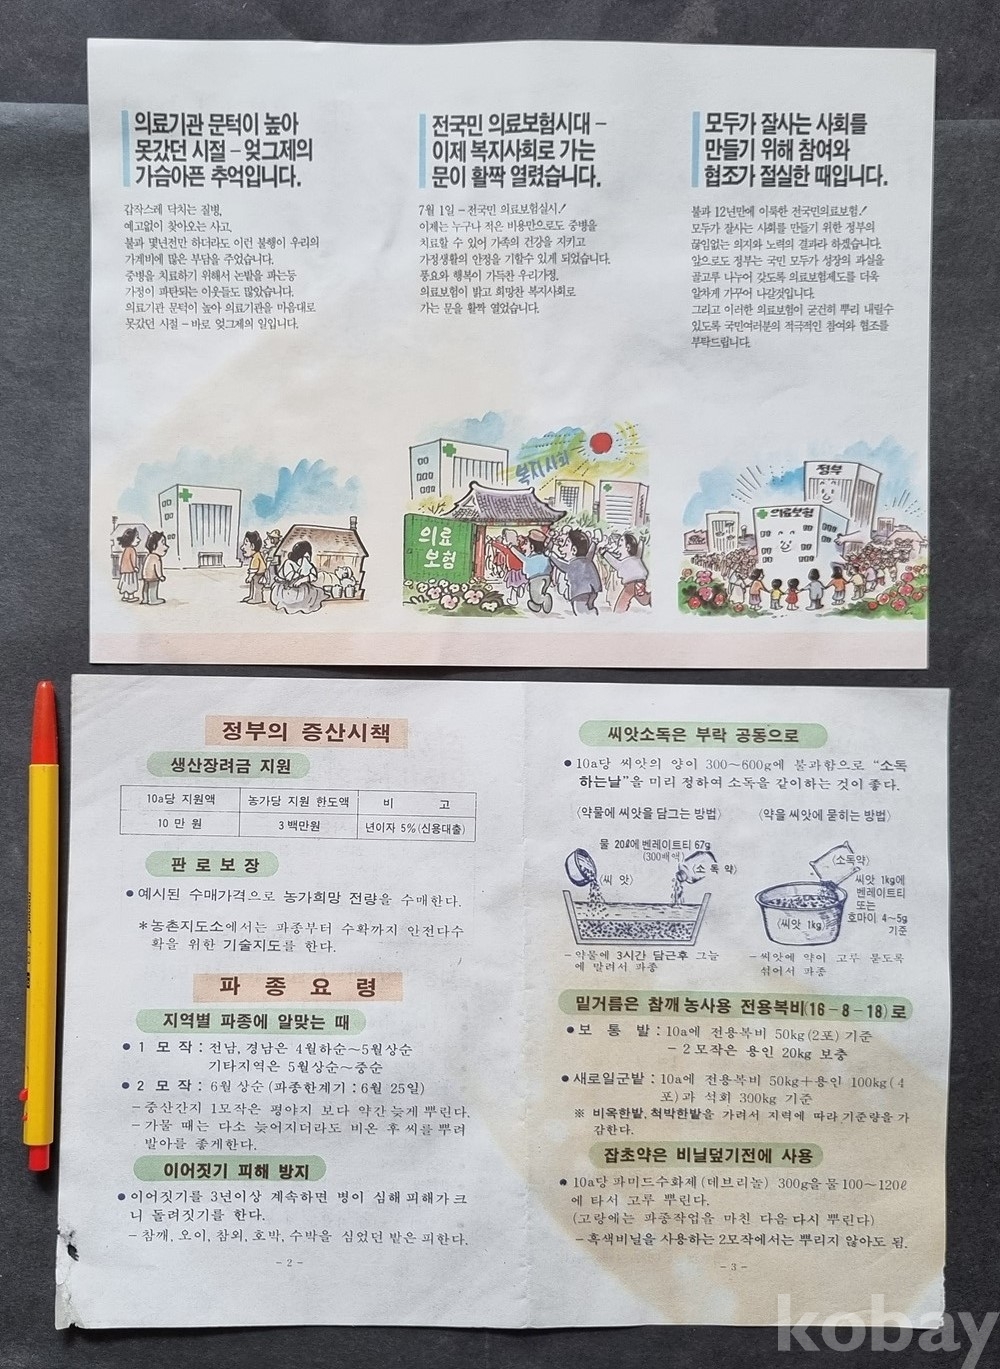 의료기관 문턱이 높아
못갔던 시절 – 엊그제의
가슴아픈 추억입니다.
갑작스레 닥치는 질병,
예고없이 찾아오는 사고,
불과 몇년전만 하더라도 이런 불행이 우리의
가계비에 많은 부담을 주었습니다.
중병을 치료하기 위해서 논밭을 파는등
가정이 파탄되는 이웃들도 많았습니다.
의료기관 문턱이 높아 의료기관을 마음대로
못갔던 시절 – 바로 엊그제의 일입니다.
전국민 의료보험시대 –
이제 복지사회로 가는
문이 활짝 열렸습니다.
7월 1일 – 전국민 의료보험실시!
이제는 누구나 적은 비용만으로도 중병을
치료할 수 있어 가족의 건강을 지키고
가정생활의 안정을 기할수 있게 되었습니다.
풍요와 행복이 가득찬 우리가정,
의료보험이 밝고 희망찬 복지사회로
가는 문을 활짝 열었습니다.
모두가 잘사는 사회를
만들기 위해 참여와
협조가 절실한 때입니다.
불과 12년만에 이룩한 전국민의료보험!
모두가 잘사는 사회를 만들기 위한 정부의
끊임없는 의지와 노력의 결과라 하겠습니다.
앞으로도 정부는 국민 모두가 성장의 과실을
골고루 나누어 갖도록 의료보험제도를 더욱
알차게 가꾸어 나갈것입니다.
그리고 이러한 의료보험이 굳건히 뿌리 내릴수
있도록 국민여러분의 적극적인 참여와 협조를
부탁드립니다.
복지사회
의료
보험
정부
의료보험
정부의 증산시책
생산장려금 지원
10a당 지원액 농가당 지원 한도액 비 고
10 만 원 3백만원 년이자 5%(신용대출)
판 로 보 장
● 예시된 수매가격으로 농가희망 전량을 수매한다.
*농촌지도소에서는 파종부터 수확까지 안전다수
확을 위한 기술지도를 한다.
파 종 요 령
지역별 파종에 알맞는 때
● 1 모 작 : 전남, 경남은 4월하순~5월상순
기타지역은 5월상순~중순
● 2 모 작 : 6월 상순 (파종한계기 : 6월 25일)
– 중산간지 1모작은 평야지 보다 약간 늦게 뿌린다.
– 가물 때는 다소 늦어지더라도 비온 후 씨를 뿌려
발아를 좋게한다.
이어짓기 피해 방지
● 이어짓기를 3년이상 계속하면 병이 심해 피해가 크
니 돌려짓기를 한다.
– 참깨, 오이, 참외, 호박, 수박을 심었던 밭은 피한다.
– 2 –
씨앗소독은 부락 공동으로
● 10a당 씨앗의 양이 300~600g에 불과함으로 “소독
하는날”을 미리 정하여 소독을 같이하는 것이 좋다.
〈약물에 씨앗을 담그는 방법〉 〈약을 씨앗에 묻히는 방법〉
물 20ℓ에 벤레이트티 67g
(300배액)
(씨 앗)
(소 독 약)
(소독약)
씨앗 1kg에
벤레이트티
또는
호마이 4~5g
기준
(씨앗 1kg)
– 약물에 3시간 담근후 그늘
에 말려서 파종
– 씨앗에 약이 고루 묻도록
섞어서 파종
밑거름은 참깨 농사용 전용복비(16–8–18)로
● 보 통 밭 : 10a에 전용복비 50kg(2포) 기준
– 2모작은 용인 20kg 보충
● 새로일군밭 : 10a에 전용복비 50kg+용인 100kg(4
포)과 석회 300kg 기준
※ 비옥한밭, 척박한밭을 가려서 지력에 따라 기준량을 가
감한다.
잡초약은 비닐덮기전에 사용
● 10a당 파미드수화제 (데브리놀) 300g을 물 100~120ℓ
에 타서 고루 뿌린다.
(고랑에는 파종작업을 마친 다음 다시 뿌린다)
– 흑색비닐을 사용하는 2모작에서는 뿌리지 않아도 됨.
– 3 –
kobay